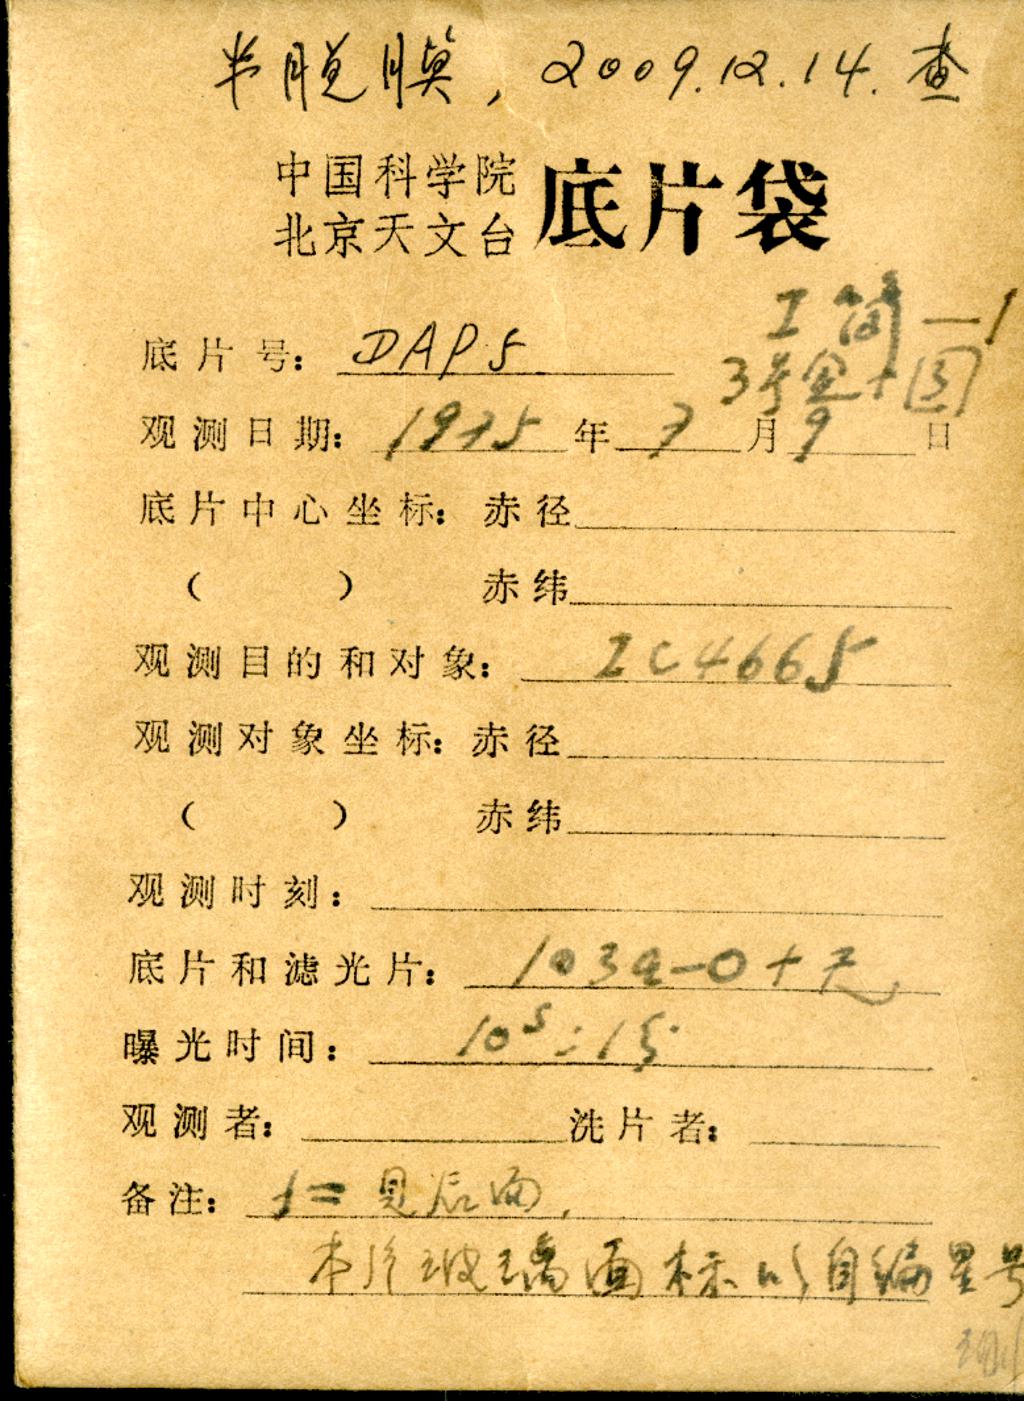 半脱膜, 2009.12.14.查
中国科学院
北京天文台 底片袋
工 简 —1
底片号: DAP5
3号 图
观测日期: 1975 年 7 月 9 日
底片中心坐标: 赤径
( ) 赤纬
观测目的和对象: IC4665
观测对象坐标: 赤径
( ) 赤纬
观测时刻:
底片和滤光片: 103a-O+无
曝光时间:
观测者: 洗片者:
备注: 见后面.
本片玻璃面标以自编星号